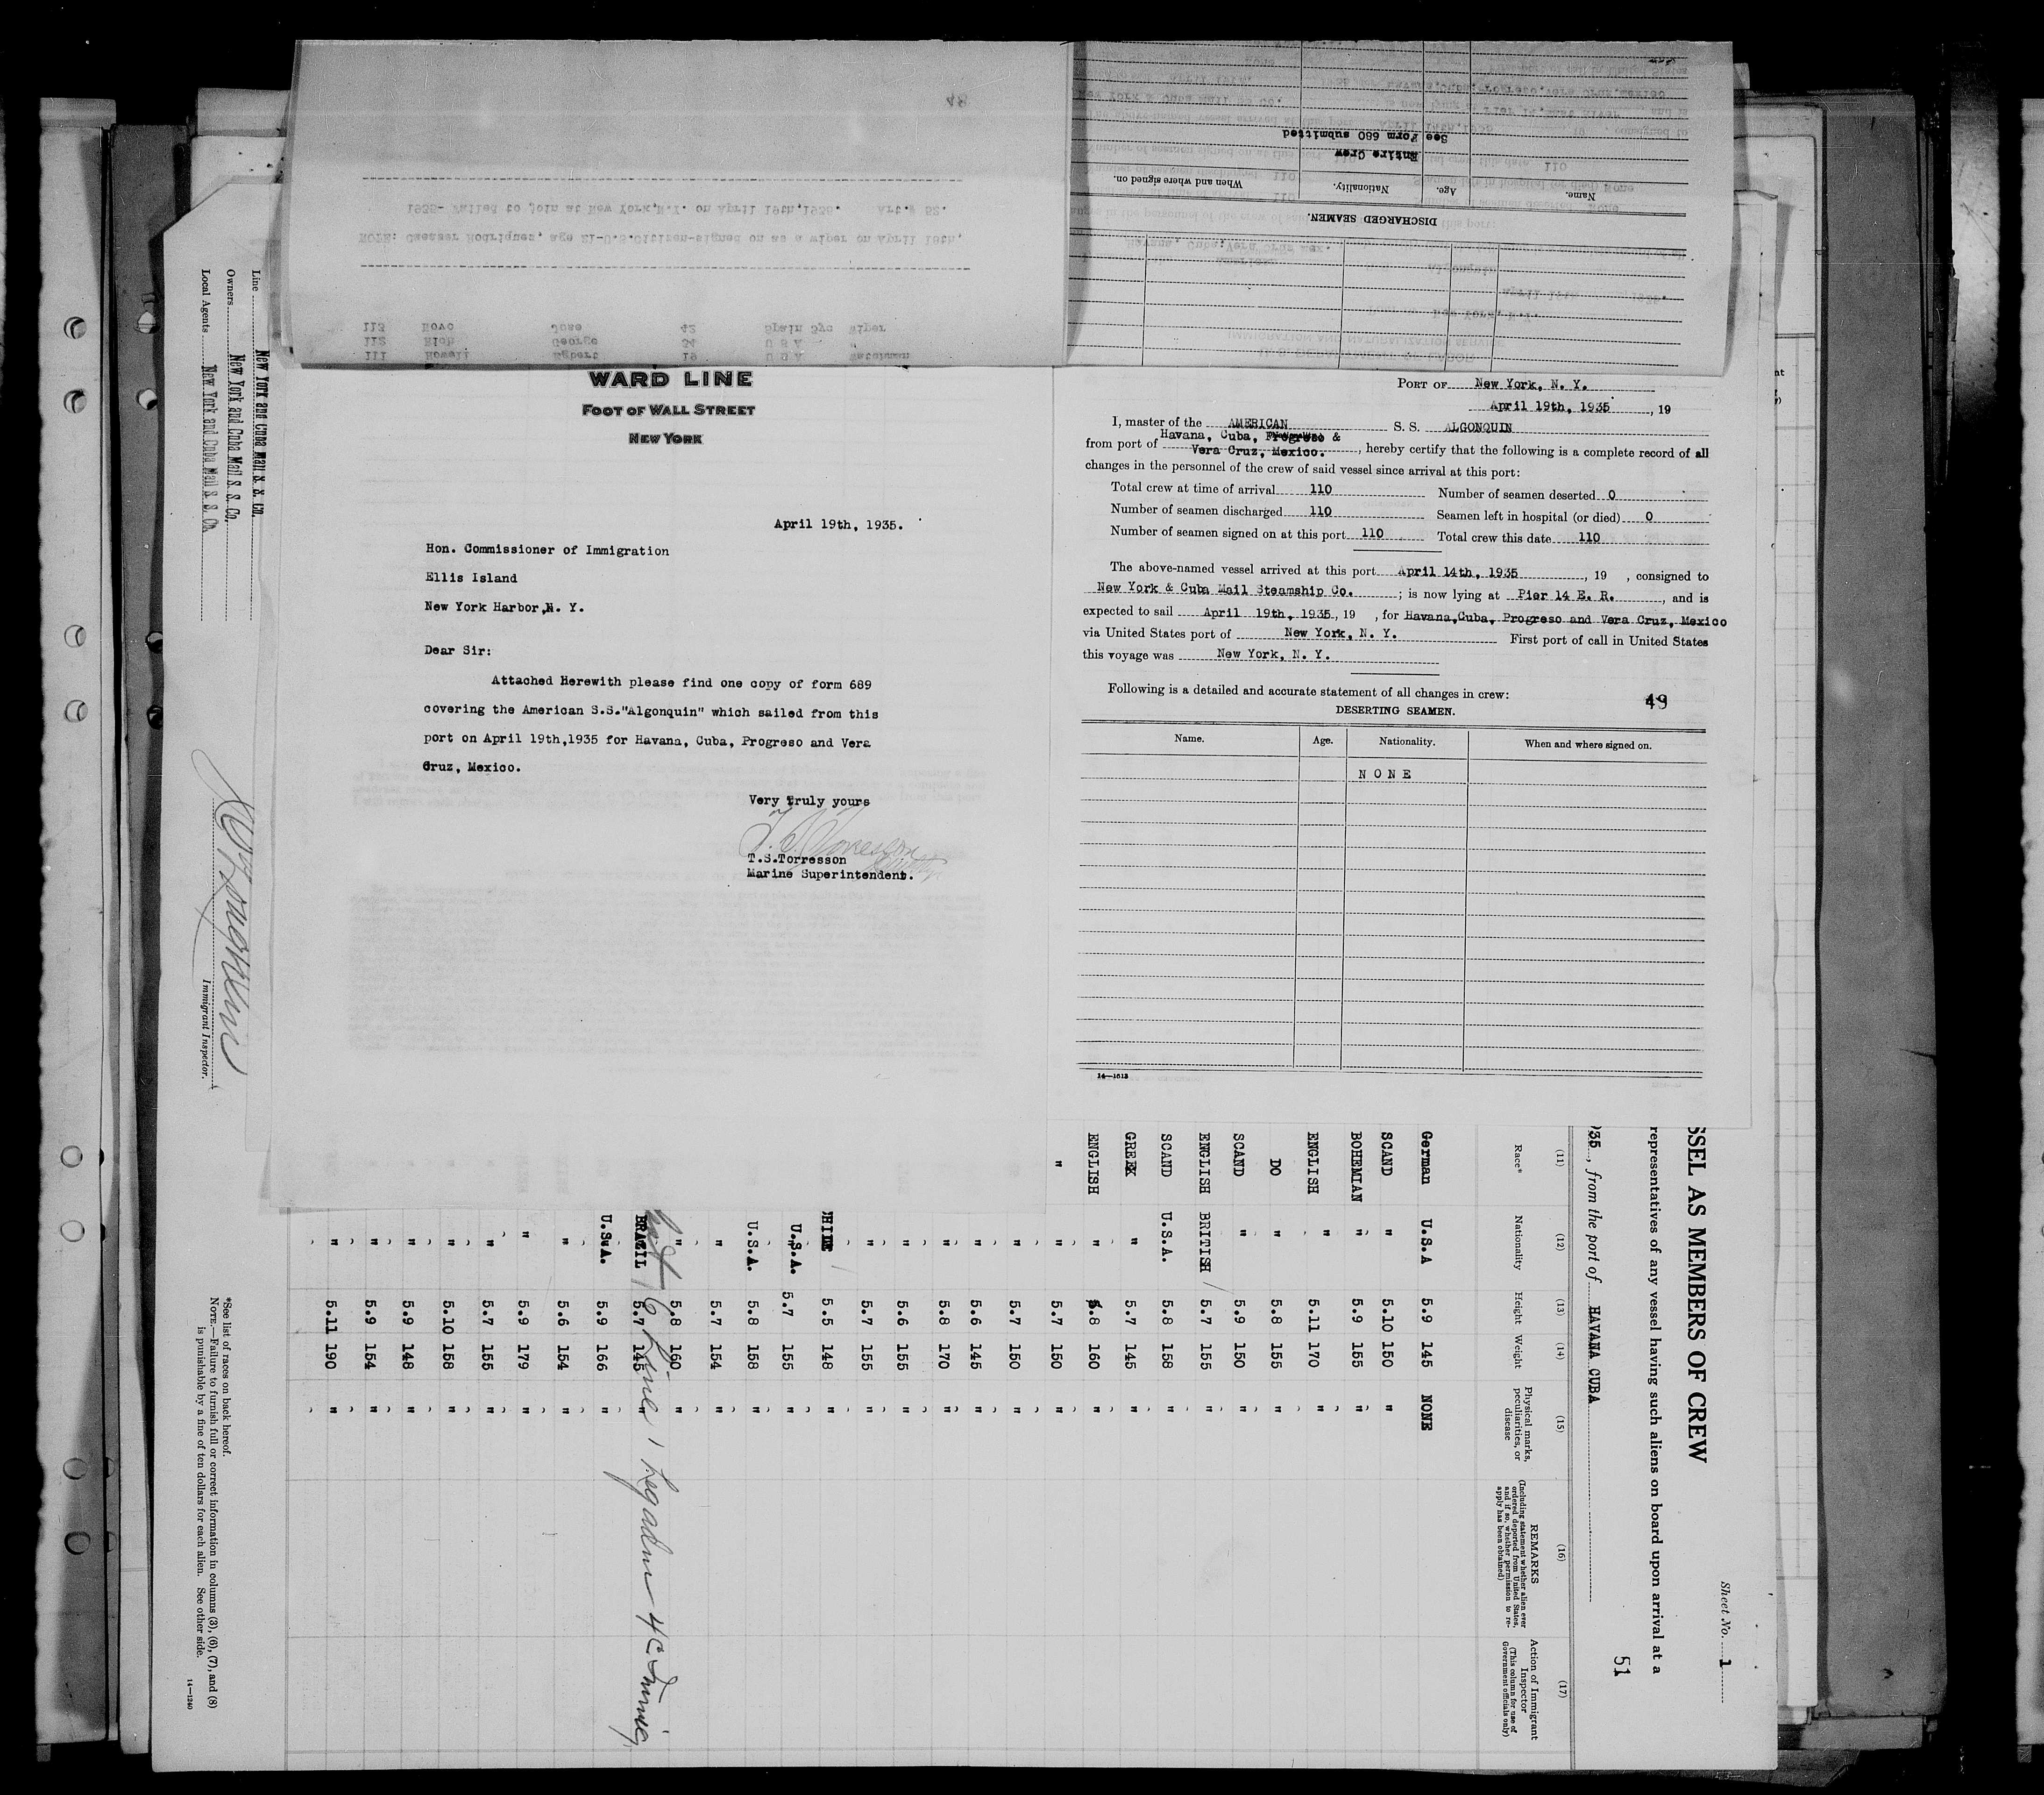 WARD LINE
FOOT OF WALL STREET
NEW YORK
April 19th, 1935.
Hon. Commissioner of Immigration
Ellis Island
New York Harbor,N. Y.
Dear Sir:
Attached Herewith please find one copy of form 689
covering the American S.S."Algonquin" which sailed from this
port on April 19th,1935 for Havana, Cuba, Progreso and Vera
Cruz, Mexico.
Very truly yours
T.S.Torresson
Marine Superintendent.
See Form 680 submitted
Entire Crew
Name.
Age.
Nationality.
When and where signed on.
DISCHARGED SEAMEN.
PORT OF New York, N. Y.
April 19th, 1935, 19
I, master of the AMERICAN S. S. ALGONQUIN
from port of Havana, Cuba, Progreso & Vera Cruz, Mexico., hereby certify that the following is a complete record of all
changes in the personnel of the crew of said vessel since arrival at this port:
Total crew at time of arrival 110 Number of seamen deserted 0
Number of seamen discharged 110 Seamen left in hospital (or died) 0
Number of seamen signed on at this port 110 Total crew this date 110
The above-named vessel arrived at this port April 14th, 1935, 19 , consigned to
New York & Cuba Mail Steamship Co. ; is now lying at Pier 14 E. R. , and is
expected to sail April 19th, 1935, 19 , for Havana,Cuba, Progreso and Vera Cruz, Mexico
via United States port of New York, N. Y. First port of call in United States
this voyage was New York, N. Y.
Following is a detailed and accurate statement of all changes in crew:
49
DESERTING SEAMEN.
Name. Age. Nationality. When and where signed on.
NONE
14—1513
Line New York and Cuba Mail S. S. Co.
Owners New York and Cuba Mail S. S. Co.
Local Agents New York and Cuba Mail S. S. Co.
Immigrant Inspector.
Sheet No. 1
SSEL AS MEMBERS OF CREW
representatives of any vessel having such aliens on board upon arrival at a
51
935, from the port of HAVANA CUBA
(11) (12) (13) (14) (15) (16) (17)
Race* Nationality Height Weight Physical marks, peculiarities, or disease REMARKS (Including statement whether alien ever ordered deported from United States, and if so, whether permission to reapply has been obtained) Action of Immigrant Inspector (This column for use of Government officials only)
German U.S.A 5.9 145 NONE
SCAND " 5.10 150 "
BOHEMIAN " 5.9 155 "
ENGLISH " 5.11 170 "
DO " 5.8 155 "
SCAND " 5.9 150 "
ENGLISH BRITISH 5.7 155 "
SCAND U.S.A. 5.8 158 "
GREEK " 5.7 145 "
ENGLISH " 5.8 160 "
" " 5.7 150 "
" 5.7 150 "
" 5.6 145 "
" 5.8 170 "
" 5.6 155 "
" 5.7 155 "
5.5 148 "
U.S.A. 5.7 155 "
U.S.A. 5.8 158 "
" 5.7 154 "
" 5.8 160 "
BRAZIL 5.7 145 "
U.S.A. 5.9 166 "
" 5.6 154 "
" 5.9 179 "
" 5.7 155 "
" 5.10 158 "
" 5.9 148 "
" 5.9 154 "
" 5.11 190 "
*See list of races on back hereof.
NOTE.—Failure to furnish full or correct information in columns (3), (6), (7), and (8)
is punishable by a fine of ten dollars for each alien. See other side.
14—1240